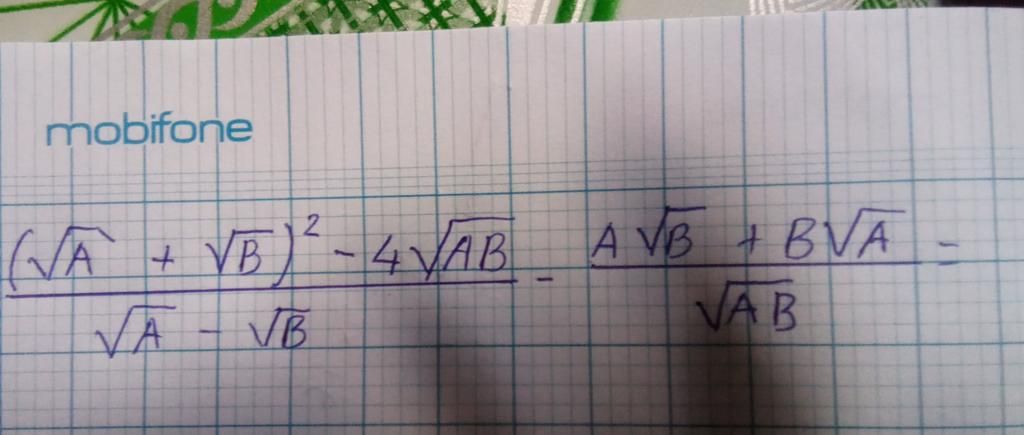 mobifone
(√A + √B)² - 4√AB / √A - √B - A√B + B√A / √AB =